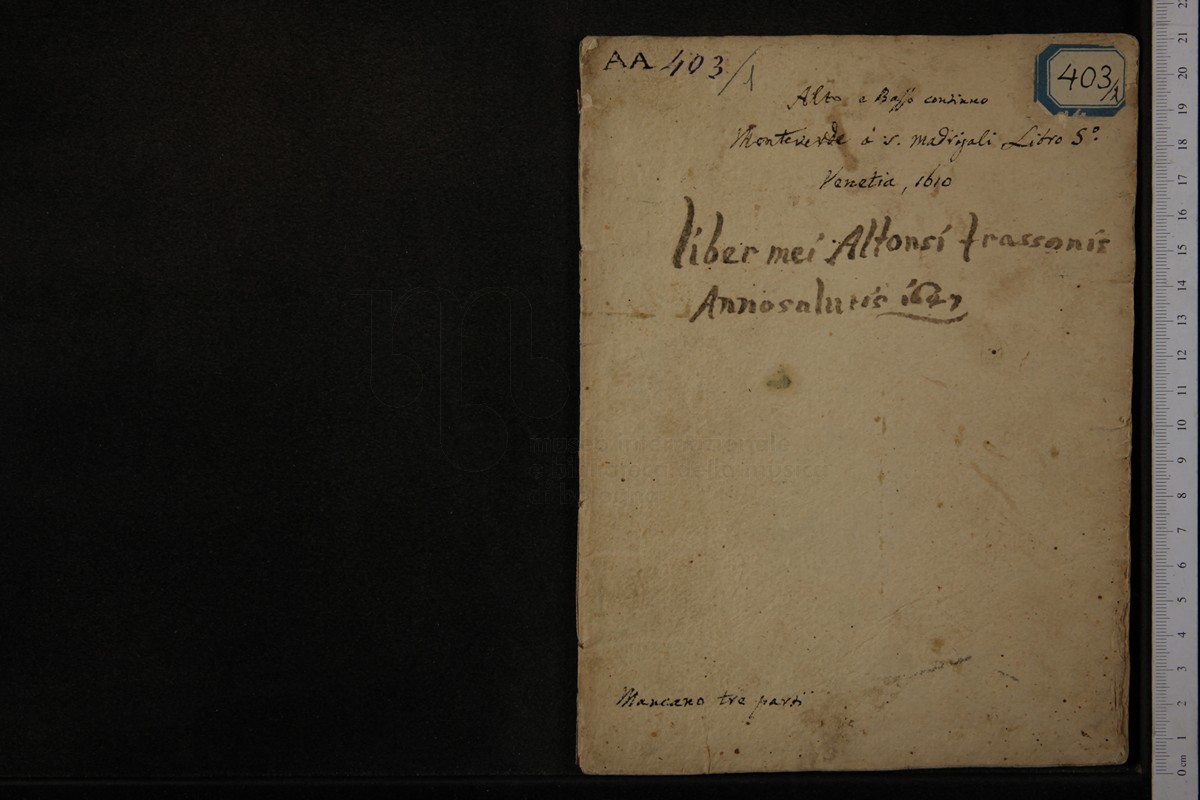 AA 403/1
403/1
Alto e Basso continuo
Monteverde à 5. madrigali Libro 5º
Venetia, 1610
liber mei Alfonsi frassonis
Anno salutis 1647
Mancano tre parti
museo internazionale
e biblioteca della musica
di bologna
22
21
20
19
18
17
16
15
14
13
12
11
10
9
8
7
6
5
4
3
2
1
0 cm